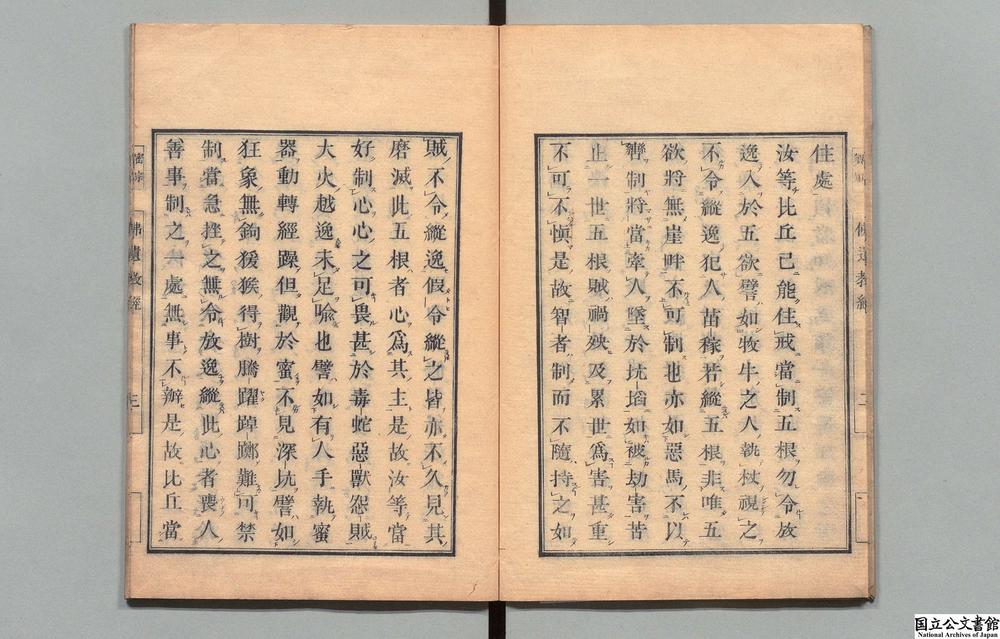 住處
汝等比丘已能住戒當制五根勿令放
逸入於五欲譬如牧牛之人執杖視之
不令縱逸犯人苗稼若縱五根非唯五
欲將無崖畔不可制也亦如惡馬不以
轡制將當牽人墜於坑埳如被劫害苦
止一世五根賊禍殃及累世爲害甚重
不可不愼是故智者制而不隨持之如
賊不令縱逸假令縱之皆亦不久見其
磨滅此五根者心爲其主是故汝等當
好制心心之可畏甚於毒蛇惡獸怨賊
大火越逸未足喩也譬如有人手執蜜
器動轉輕躁但觀於蜜不見深坑譬如
狂象無鉤猨猴得樹騰躍踔躑難可禁
制當急挫之無令放逸縱此心者喪人
善事制之一處無事不辦是故比丘當
佛遺教經
三
国立公文書館
National Archives of Japan